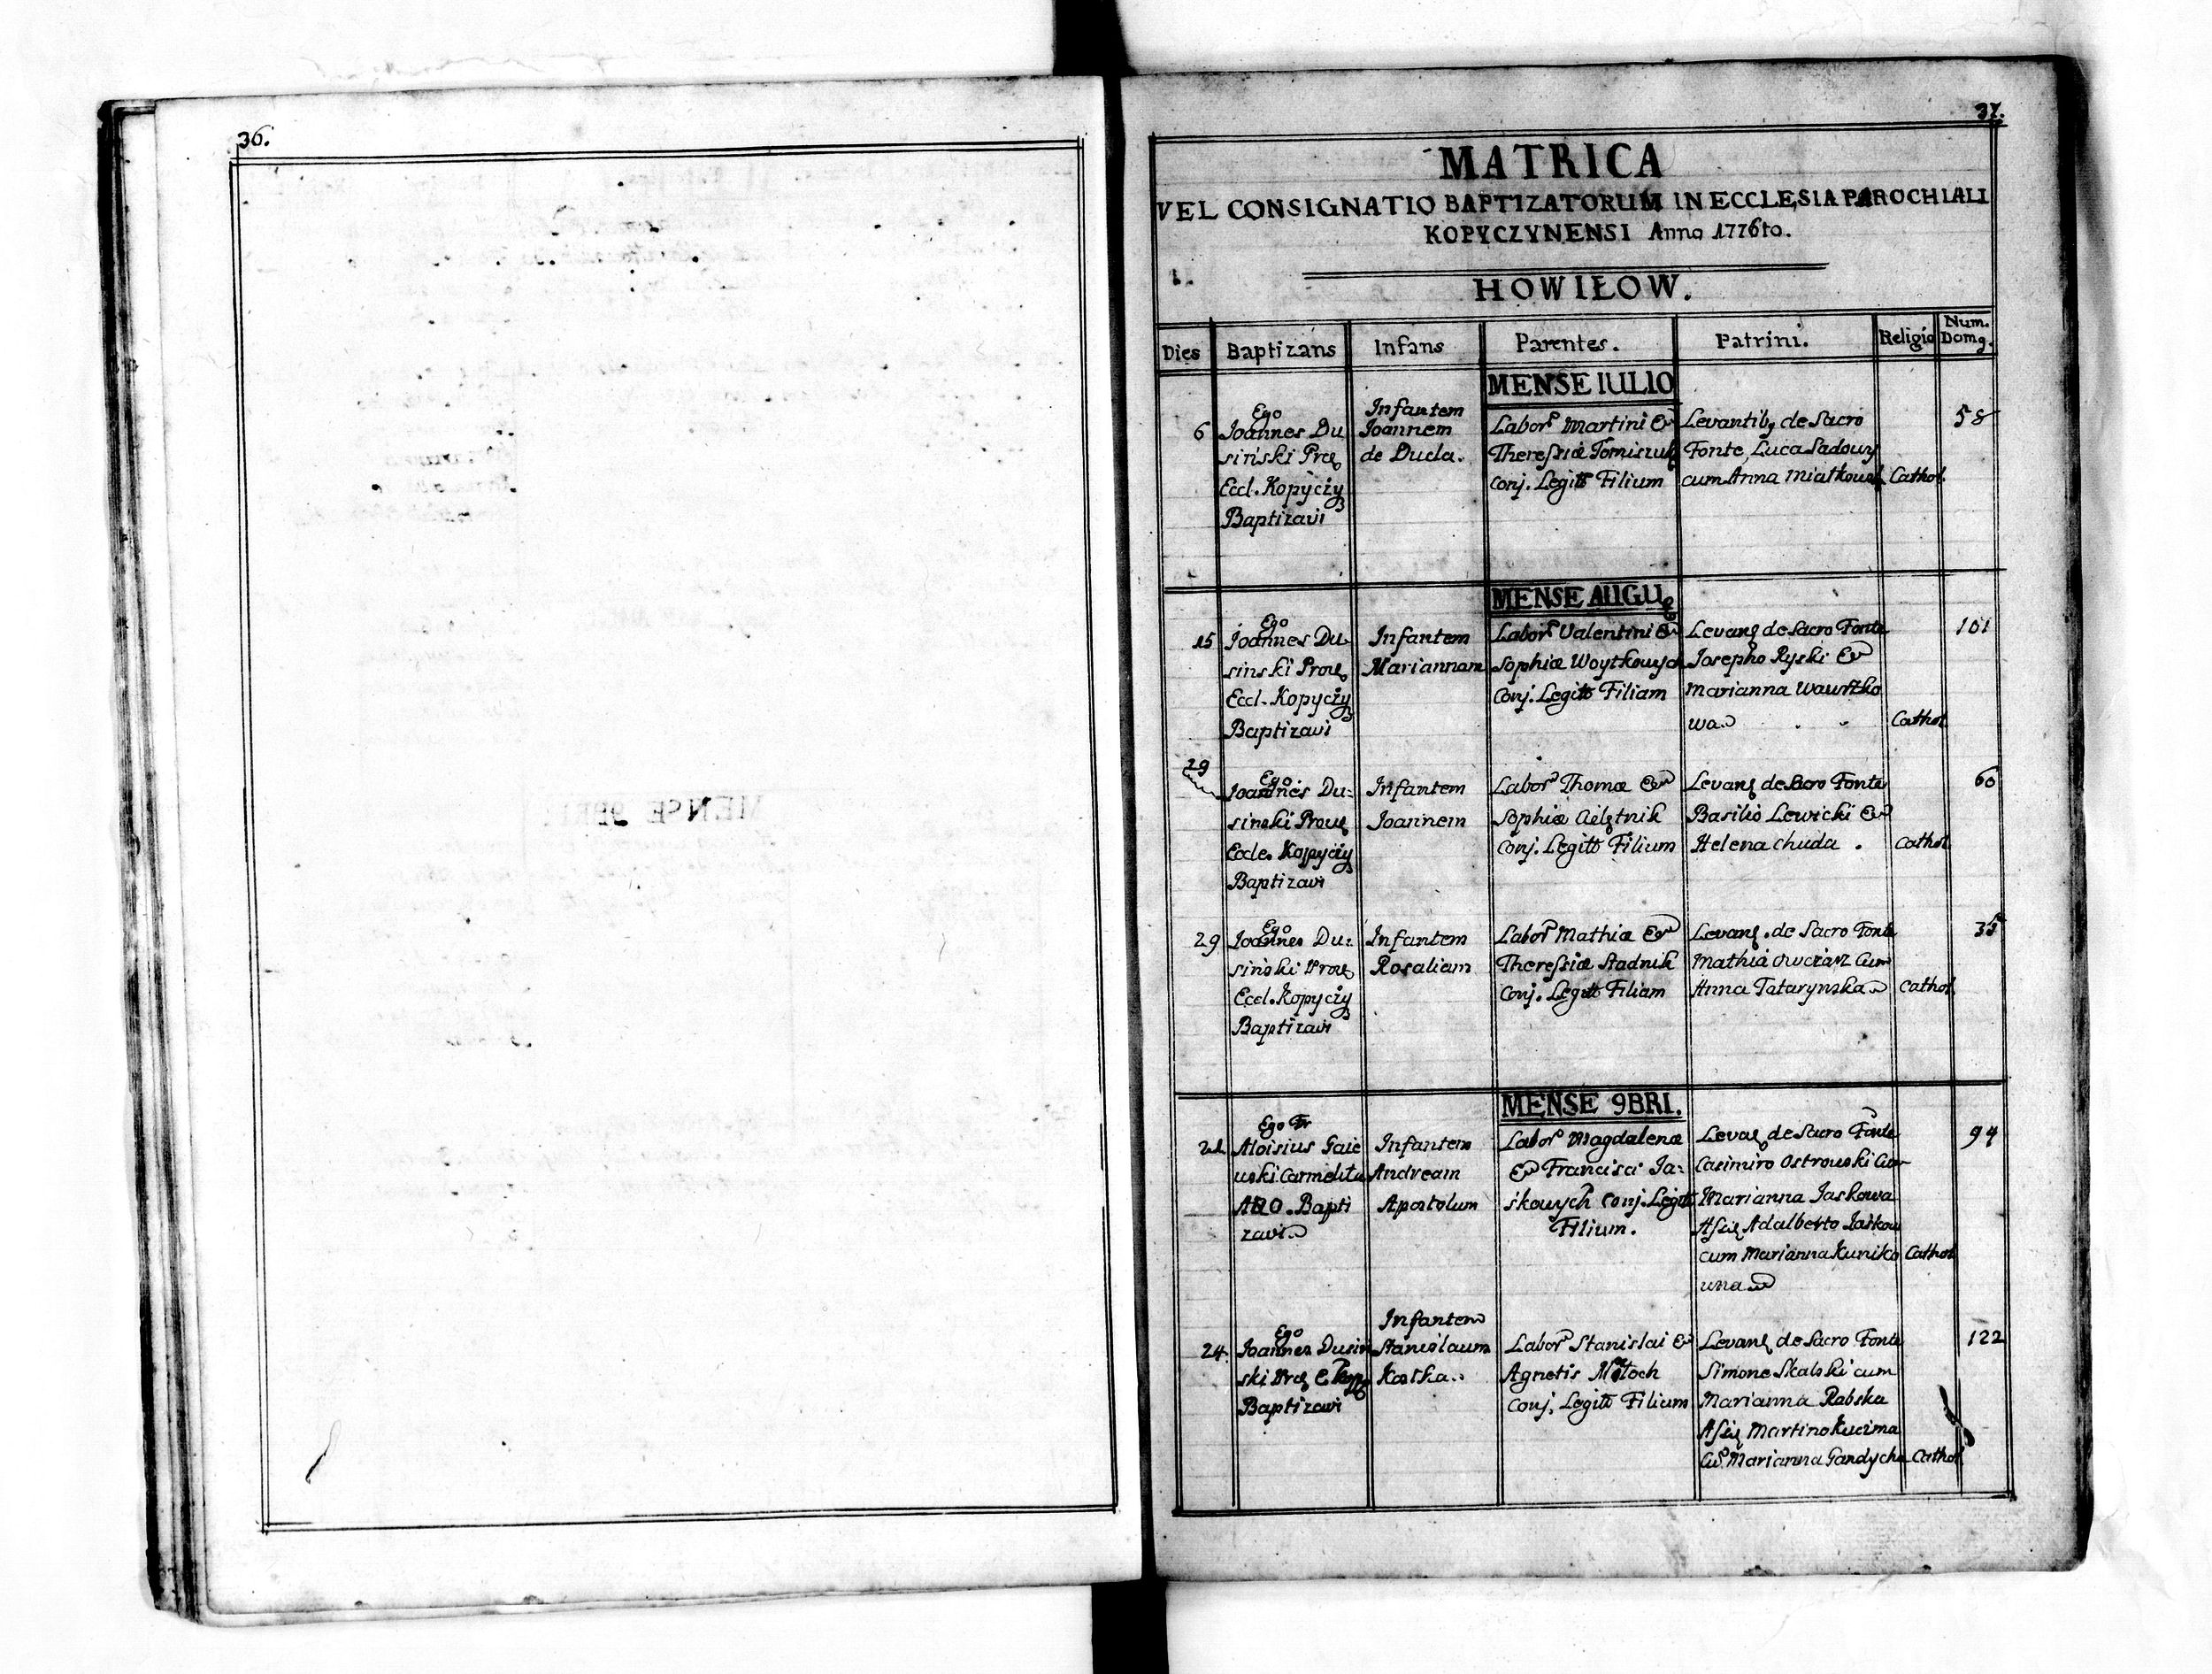 36.
37.
MATRICA
VEL CONSIGNATIO BAPTIZATORUM IN ECCLESIA PAROCHIALI
KOPYCZYNENSI Anno 1776to.
HOWIŁOW.
Dies Baptizans Infans Parentes. Patrini. Religio Num. Domq.
MENSE IULIO
6
Ego
Joannes Du
siński Præ
Eccl. Kopyczy
Baptizavi
Infantem
Joannem
de Ducla.
Labor Martini &
Theressiæ
Conj. Legitt Filium
Levantibq de Sacro
Fonte, Luca Sadowy
cum Anna
Cathol.
58
MENSE AUGU
15
Ego
Joannes Du
sinski Prou
Eccl. Kopyczy
Baptizavi
Infantem
Mariannam
Labor Valentini &
Sophiæ Woytkowych
Conj. Legitt Filiam
Levanq de Sacro Fonte
Josepho Ryski &
Marianna Wawrzko
wa
Cathol
101
29
Ego
Joannes Du:
sinski Prou
Eccle. Kopyczy
Baptizavi
Infantem
Joannem
Labor Thomæ &
Sophiæ
Conj. Legitt Filium
Levanq de Sacro Fonte
Basilio Lewicki &
Helena Chuda .
Cathol
60
29
Ego
Joannes Du:
sinski Prou
Eccl. Kopyczy
Baptizavi
Infantem
Rosaliam
Labor Mathiæ &
Theressiæ Stadnik
Conj. Legitt Filiam
Levanq. de Sacro Fonte
Mathia cum
Anna Tatarynska
Cathol.
MENSE 9BRI.
Ego Fr
Aloisius Gaie
wski Carmelita
Bapti
zavi
Infantem
Andream
Apostolum
Labor Magdalenæ
& Francisci Ja:
śkowych Conj. Legitt
Filium.
Levaq de Sacro Fonte
Casimiro Ostrowski Cum
Marianna Jaskowa
Assisq Adalberto Jaśkow
cum Marianna Kuniko
wna
Cathol
94
24.
Ego
Joannes Dusin
ski
Baptizavi
Infantem
Stanislaum
Kostka.
Labor Stanislai &
Agnetis
Conj. Legitt Filium
Levanq de Sacro Fonte
Simone Skalski cum
Marianna Rabska
Assisq Martino Kucima
Marianna
Cathol
122